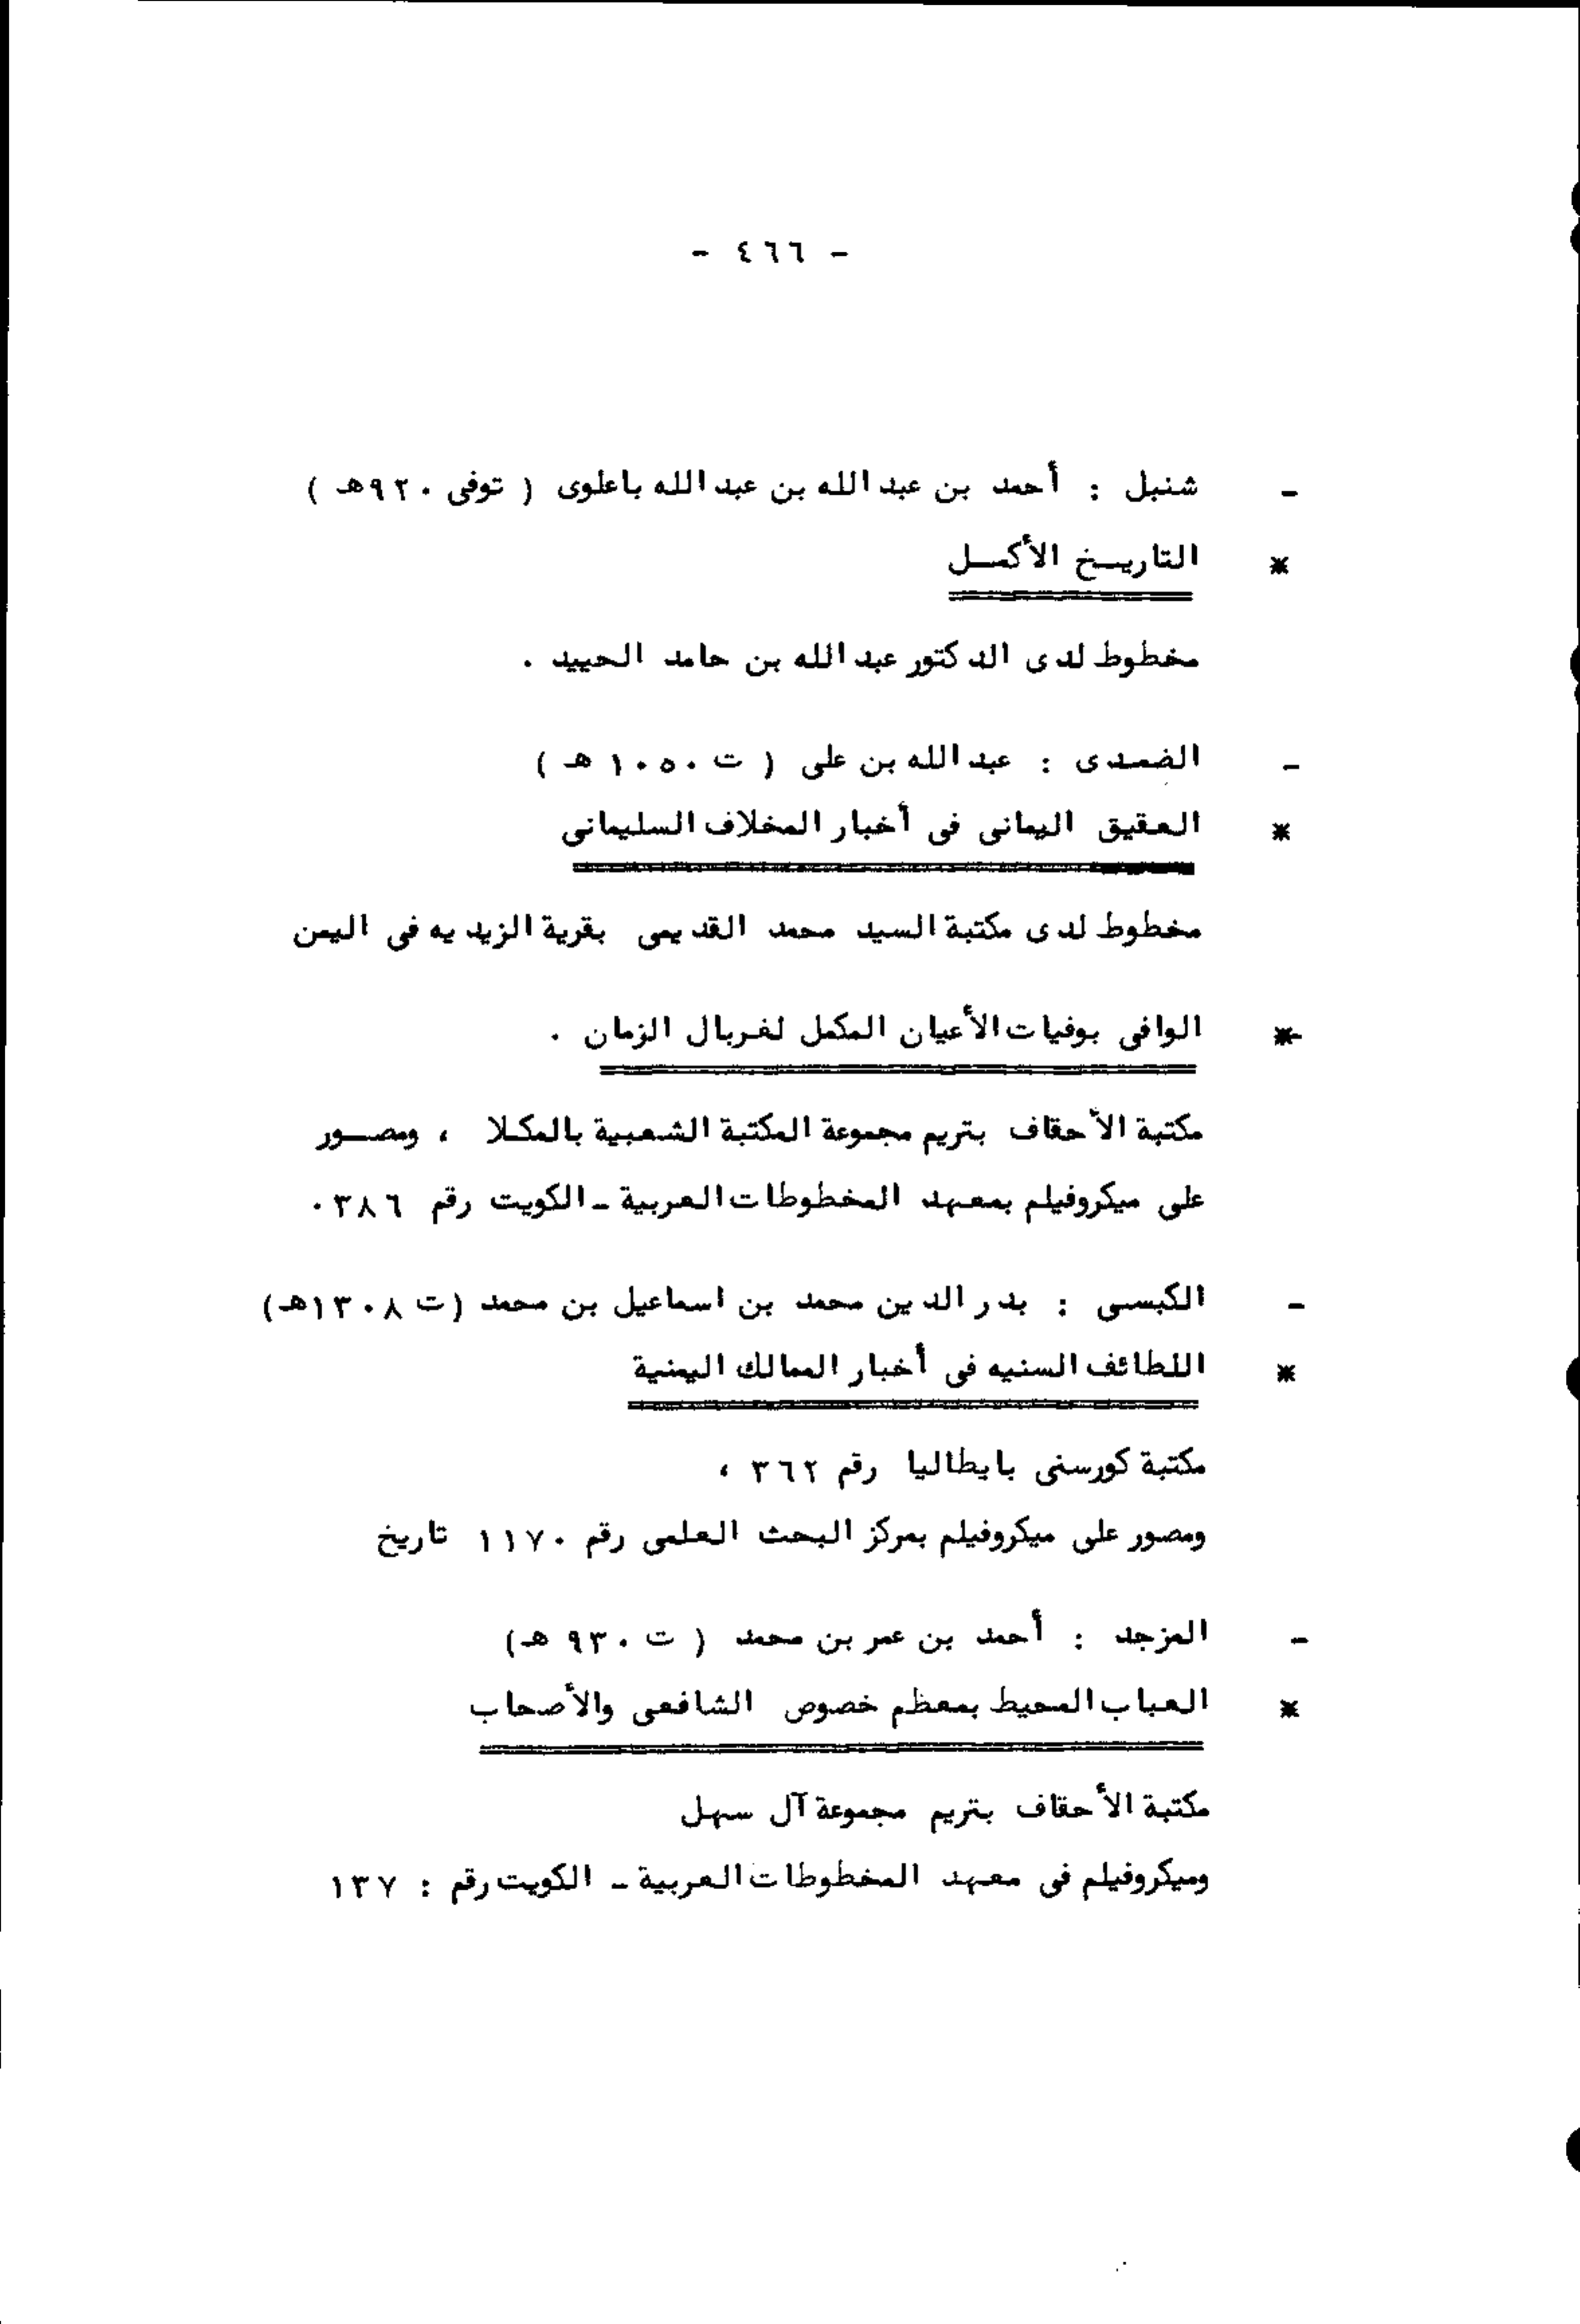 - ٤٦٦ -
- شنبل : أحمد بن عبد الله بن عبد الله باعلوى ( توفى ٩٢٠هـ )
* التاريـخ الأكمـل
مخطوط لدى الدكتور عبد الله بن حامد الحييد .
- الضمدى : عبد الله بن على ( ت ١٠٥٠ هـ )
* العقيق اليمانى فى أخبار المخلاف السليمانى
مخطوط لدى مكتبة السيد محمد القديمى بقرية الزيديه فى اليمن
* الوافى بوفيات الأعيان المكمل لغربال الزمان .
مكتبة الأحقاف بتريم مجموعة المكتبة الشعبية بالمكلا ، ومصـور
على ميكروفيلم بمعهد المخطوطات العربية - الكويت رقم ٣٨٦ .
- الكبسى : بدر الدين محمد بن اسماعيل بن محمد (ت ١٣٠٨هـ)
* اللطائف السنيه فى أخبار الممالك اليمنية
مكتبة كورسنى بايطاليا رقم ٣٦٢ ،
ومصور على ميكروفيلم بمركز البحث العلمى رقم ١١٧٠ تاريخ
- المزجد : أحمد بن عمر بن محمد ( ت ٩٣٠ هـ)
* العباب المحيط بمعظم خصوص الشافعى والأصحاب
مكتبة الأحقاف بتريم مجموعة آل سهل
وميكروفيلم فى معهد المخطوطات العربية - الكويت رقم : ١٣٧